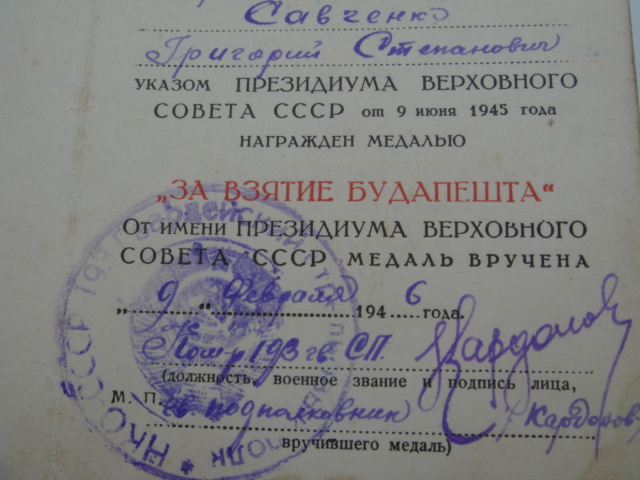 Савченко
Григорий Степанович
УКАЗОМ ПРЕЗИДИУМА ВЕРХОВНОГО
СОВЕТА СССР от 9 июня 1945 года
НАГРАЖДЕН МЕДАЛЬЮ
„ЗА ВЗЯТИЕ БУДАПЕШТА“
От имени ПРЕЗИДИУМА ВЕРХОВНОГО
СОВЕТА СССР МЕДАЛЬ ВРУЧЕНА
„9“ Февраля 1946 года.
193 гв. СП.
(должность, военное звание и подпись лица,
М. П. гв подполковник Кардонов
вручившего медаль)
НКО СССР гвардейский полк